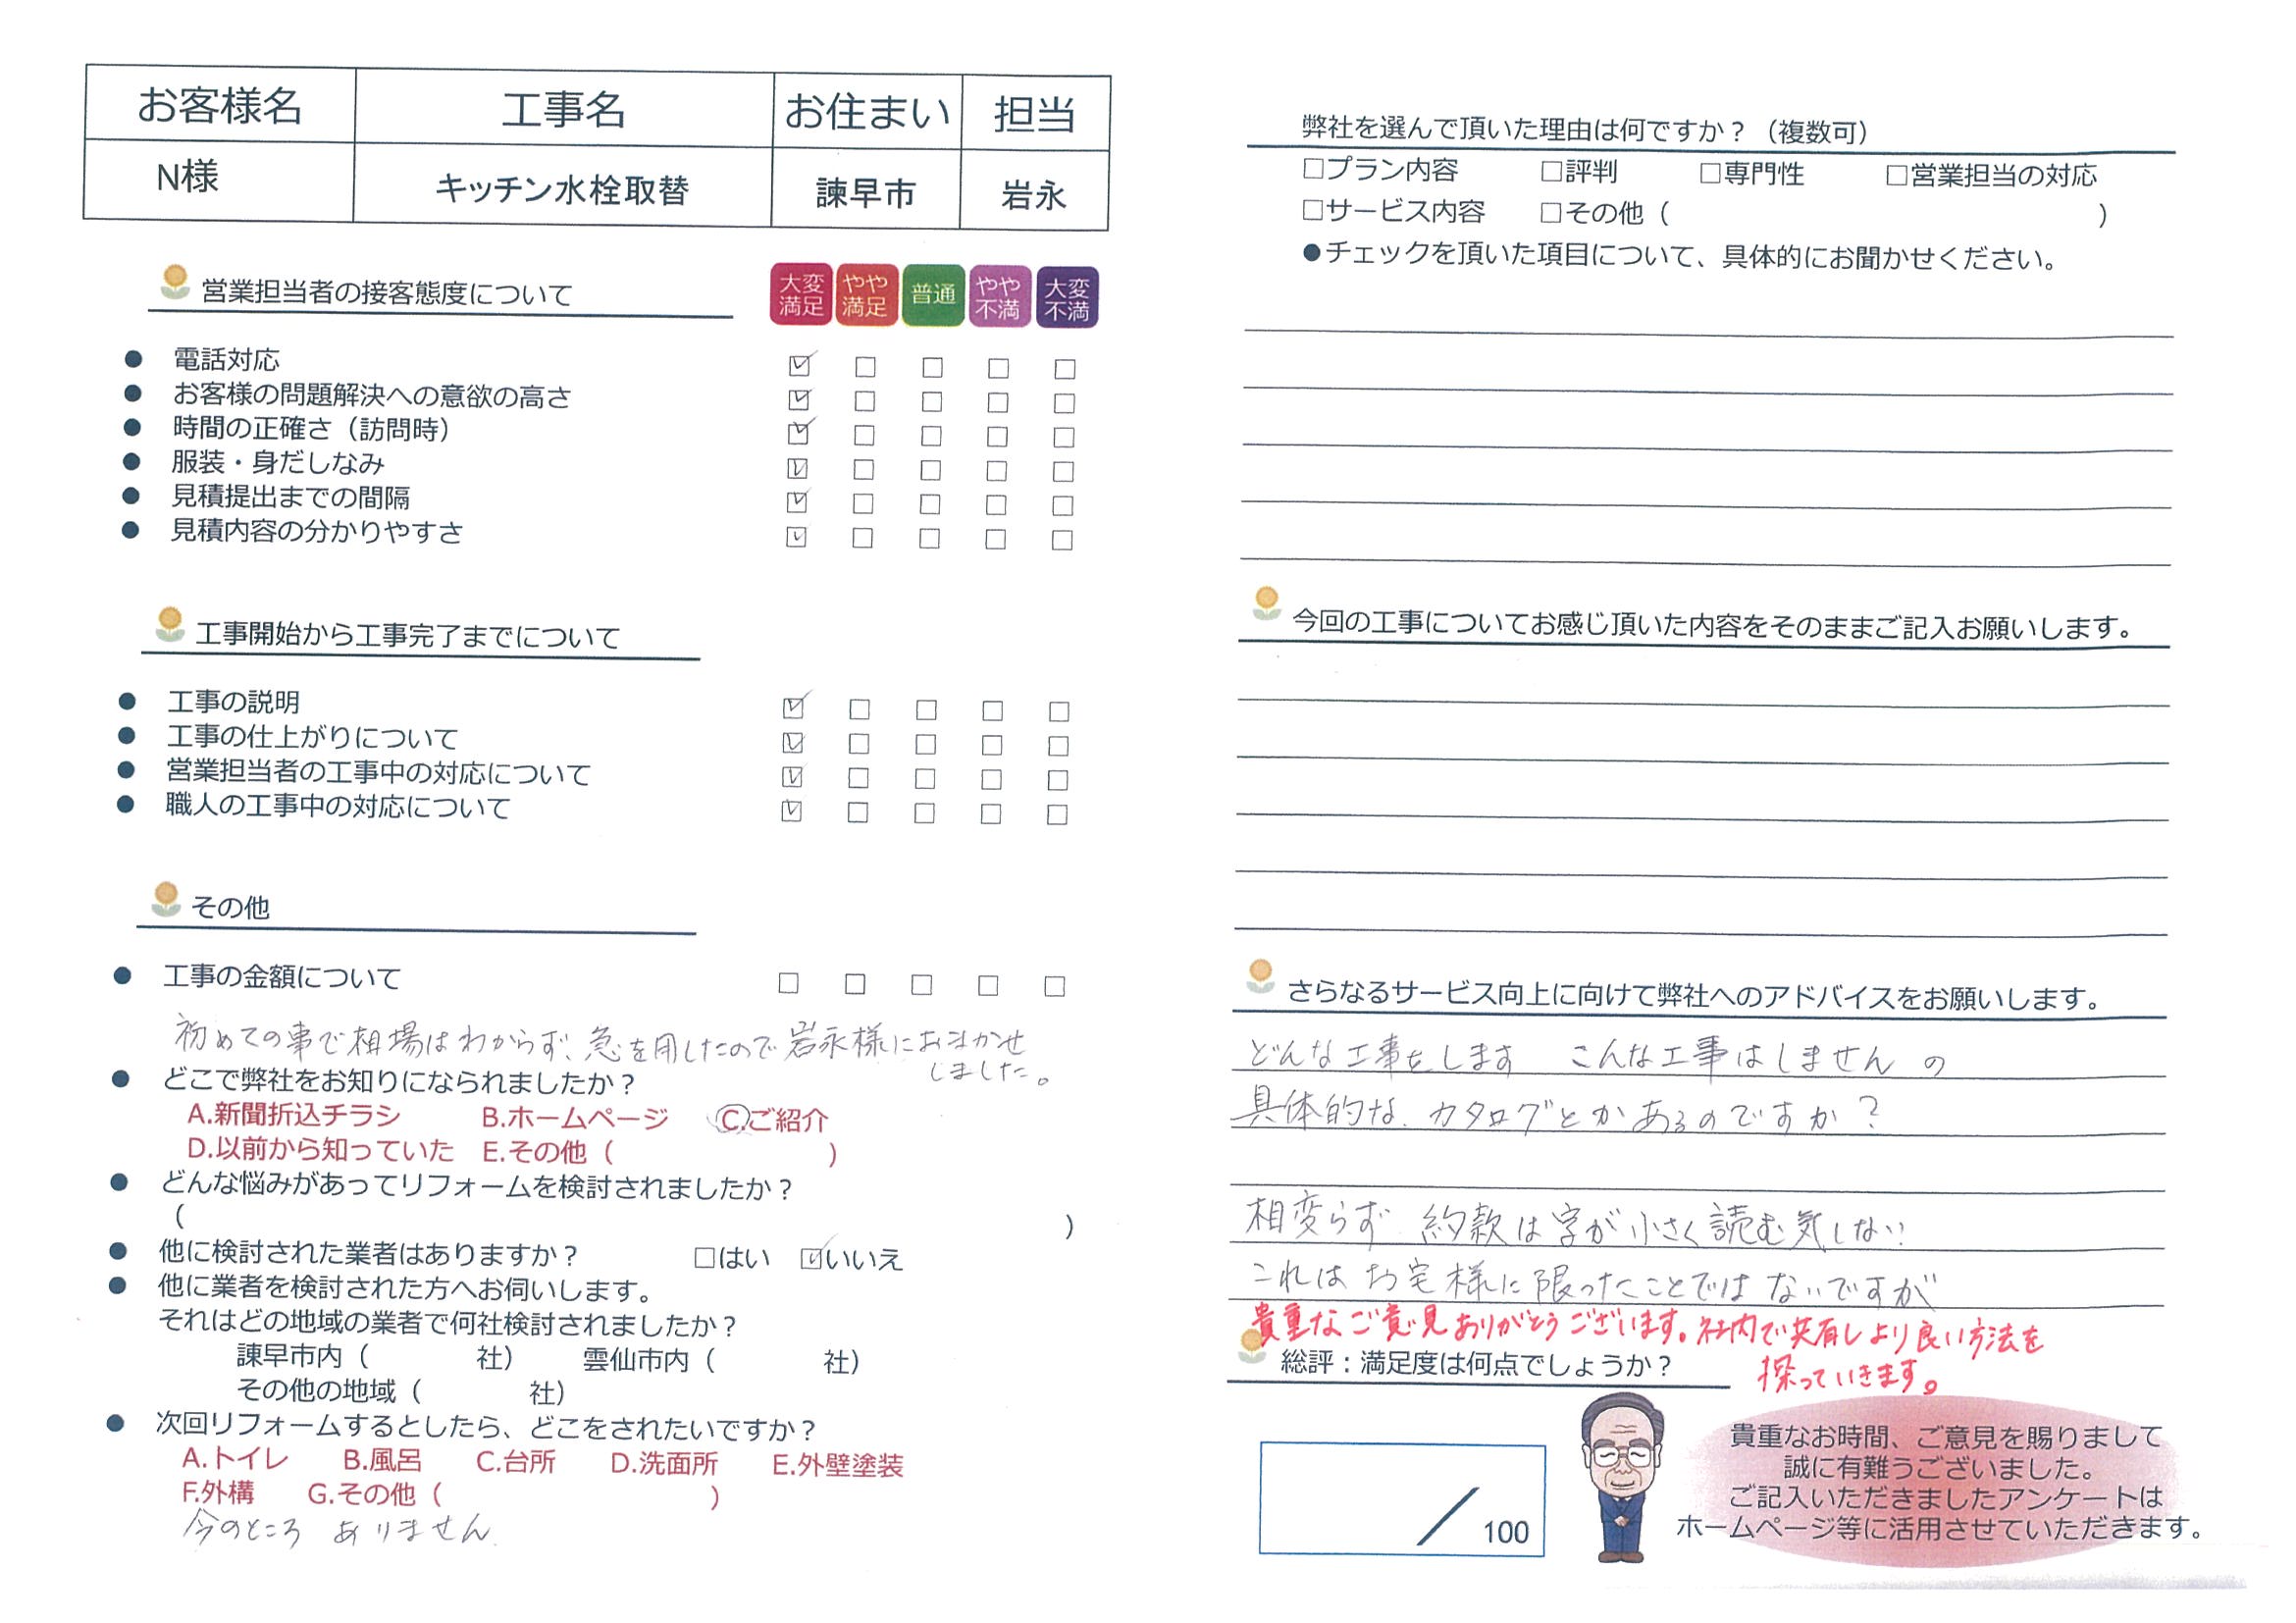 お客様名 工事名 お住まい 担当
N様 キッチン水栓取替 諫早市 岩永
営業担当者の接客態度について
大変満足 やや満足 普通 やや不満 大変不満
● 電話対応 ☑ □ □ □ □
● お客様の問題解決への意欲の高さ ☑ □ □ □ □
● 時間の正確さ（訪問時） ☑ □ □ □ □
● 服装・身だしなみ ☑ □ □ □ □
● 見積提出までの間隔 ☑ □ □ □ □
● 見積内容の分かりやすさ ☑ □ □ □ □
工事開始から工事完了までについて
● 工事の説明 ☑ □ □ □ □
● 工事の仕上がりについて ☑ □ □ □ □
● 営業担当者の工事中の対応について ☑ □ □ □ □
● 職人の工事中の対応について ☑ □ □ □ □
その他
● 工事の金額について □ □ □ □ □
初めての事で相場はわからず、急を用したので岩永様におまかせ
しました。
● どこで弊社をお知りになられましたか？
A.新聞折込チラシ B.ホームページ C.ご紹介
D.以前から知っていた E.その他（ ）
● どんな悩みがあってリフォームを検討されましたか？
（ ）
● 他に検討された業者はありますか？ □はい ☑いいえ
● 他に業者を検討された方へお伺いします。
それはどの地域の業者で何社検討されましたか？
諫早市内（ 社） 雲仙市内（ 社）
その他の地域（ 社）
● 次回リフォームするとしたら、どこをされたいですか？
A.トイレ B.風呂 C.台所 D.洗面所 E.外壁塗装
F.外構 G.その他（ ）
今のところ ありません
弊社を選んで頂いた理由は何ですか？（複数可）
□プラン内容 □評判 □専門性 □営業担当の対応
□サービス内容 □その他（ ）
●チェックを頂いた項目について、具体的にお聞かせください。
今回の工事についてお感じ頂いた内容をそのままご記入お願いします。
さらなるサービス向上に向けて弊社へのアドバイスをお願いします。
どんな工事をします こんな工事はしません の
具体的な、カタログとかあるのですか？
相変らず 約款は字が小さく読む気しない！
これはお宅様に限ったことではないですが
貴重なご意見ありがとうございます。社内で共有しより良い方法を
探っていきます。
総評：満足度は何点でしょうか？
／100
貴重なお時間、ご意見を賜りまして
誠に有難うございました。
ご記入いただきましたアンケートは
ホームページ等に活用させていただきます。